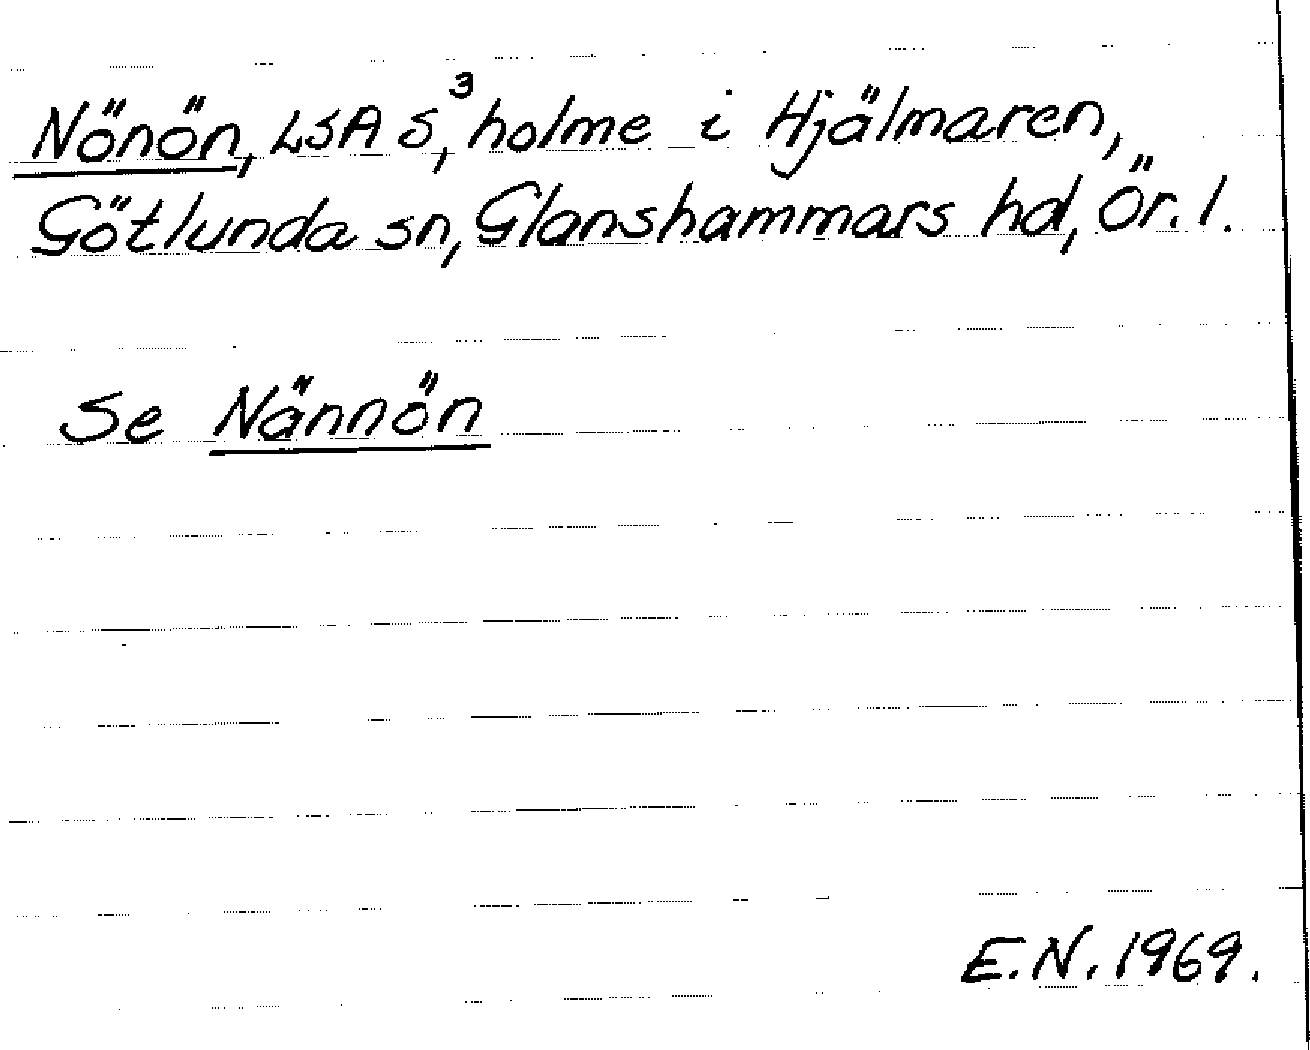 Nönön, LSA S³, holme i Hjälmaren,
Götlunda sn, Glanshammars hd, Ör. l.
Se Nännön
E.N. 1969.